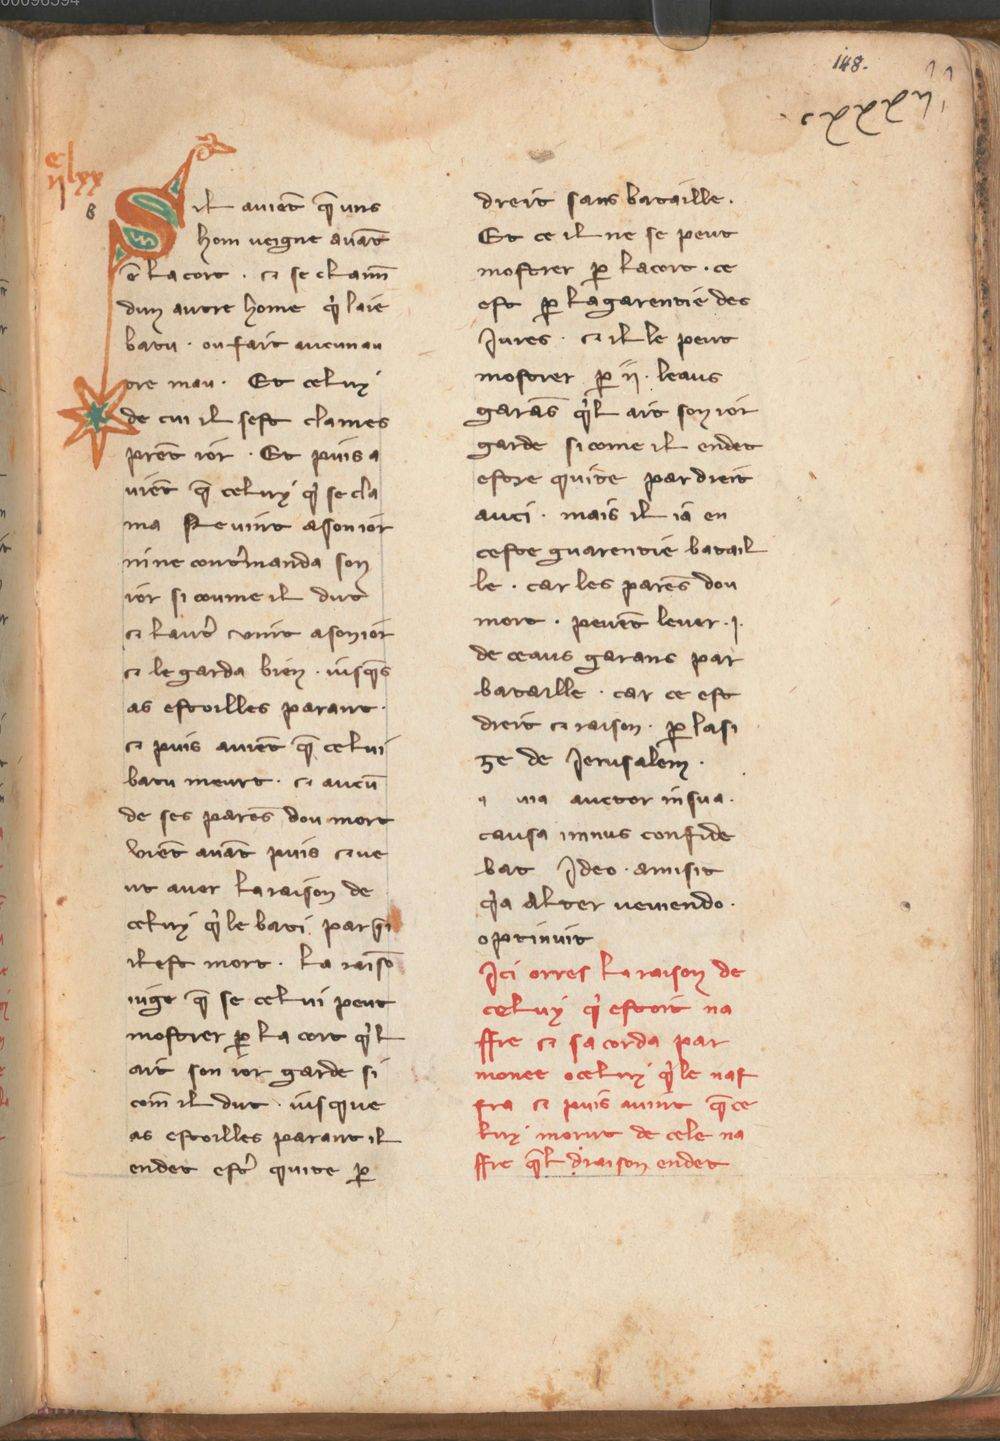 00096594
148.
cxxxxii
cc
lxx
ii
8
Sil auient q̄ uns
hom ueigne auāt
ē la cort · et se claim̄
dun autre home q̇ laie
batu · ou fait aucun au
tre mau · Et celuy
de cui il sest clames
prēt ior · Et puis a
uiēt q̄ celuy q̇ se cla
ma ne uint a son ior
ni ne contͬmanda son
ior si coume il dut
et lautͬ uint a son ior
et le garda bien · iusq̄s
as estoilles parant ·
et puis auiēt q̄ celui
batu meurt · et aucū
de ses parēs dou mort
viēt auāt puis et ue
ut auer la raison de
celuy q̇ le bati par q̇i
il est mort · La raisō
iuge q̄ se celui peut
mostrer ꝑ la cort q̇l
ait son ior garde si
com̄ il dut · iusque
as estoilles parant il
endet estͬ quite ꝑ
dreit sans bataille ·
Et ce il ne se peut
mostrer ꝑ la cort · ce
est ꝑ la garentie des
Jures · et il le peut
mostrer ꝑ ii · leaus
garās q̇l ait son ior
garde si come il endet
estre quite par dreit
auci · mais il ia en
ceste guarentie batail
le · car les parēs dou
mort · peuēt leuer · i ·
de ceaus garans par
bataille · car ce est
dreit et raison · ꝑ lasi
ze de Jerusalem ·
q uia auctor in sua ·
causa minus confide
bat Ideo · amisit
q̇a alter ueniendo ·
optinuit
Ici orres la raison de
celuy q̇ estoit na
ffre et sa corda par
monee o celuy q̇ le naf
fra et puis auint q̄ ce
luy morut de cele na
ffre q̄l draison endet